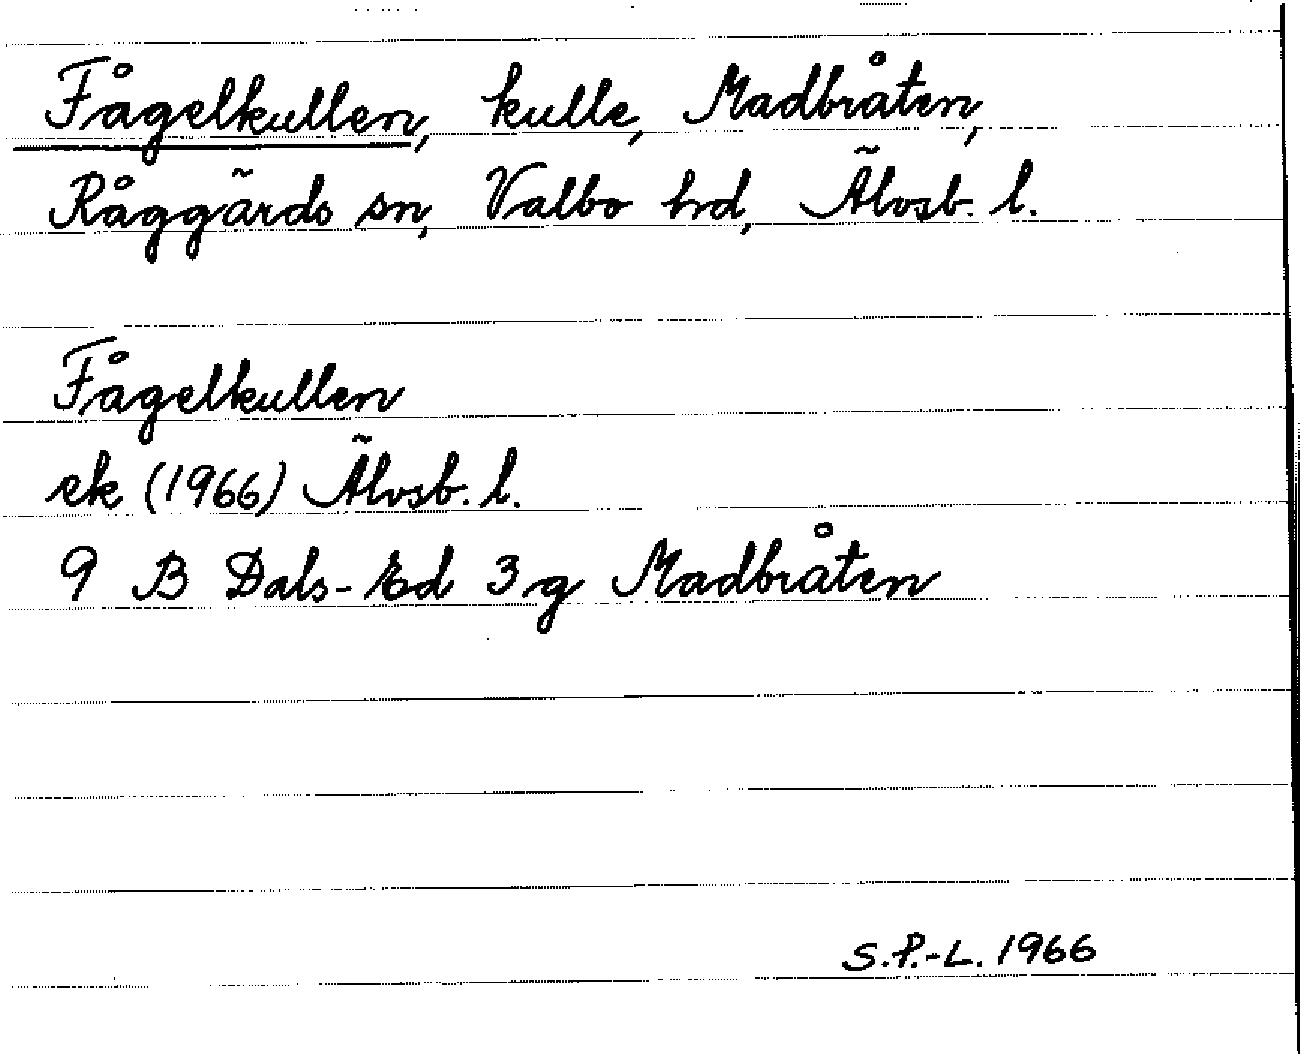 Fågelkullen, kulle, Madbråten,
Råggärds sn, Valbo hrd, Älvsb. l.
Fågelkullen
ek (1966) Älvsb. l.
9 B Dals-Ed 3 g Madbråten
S.P.-L. 1966